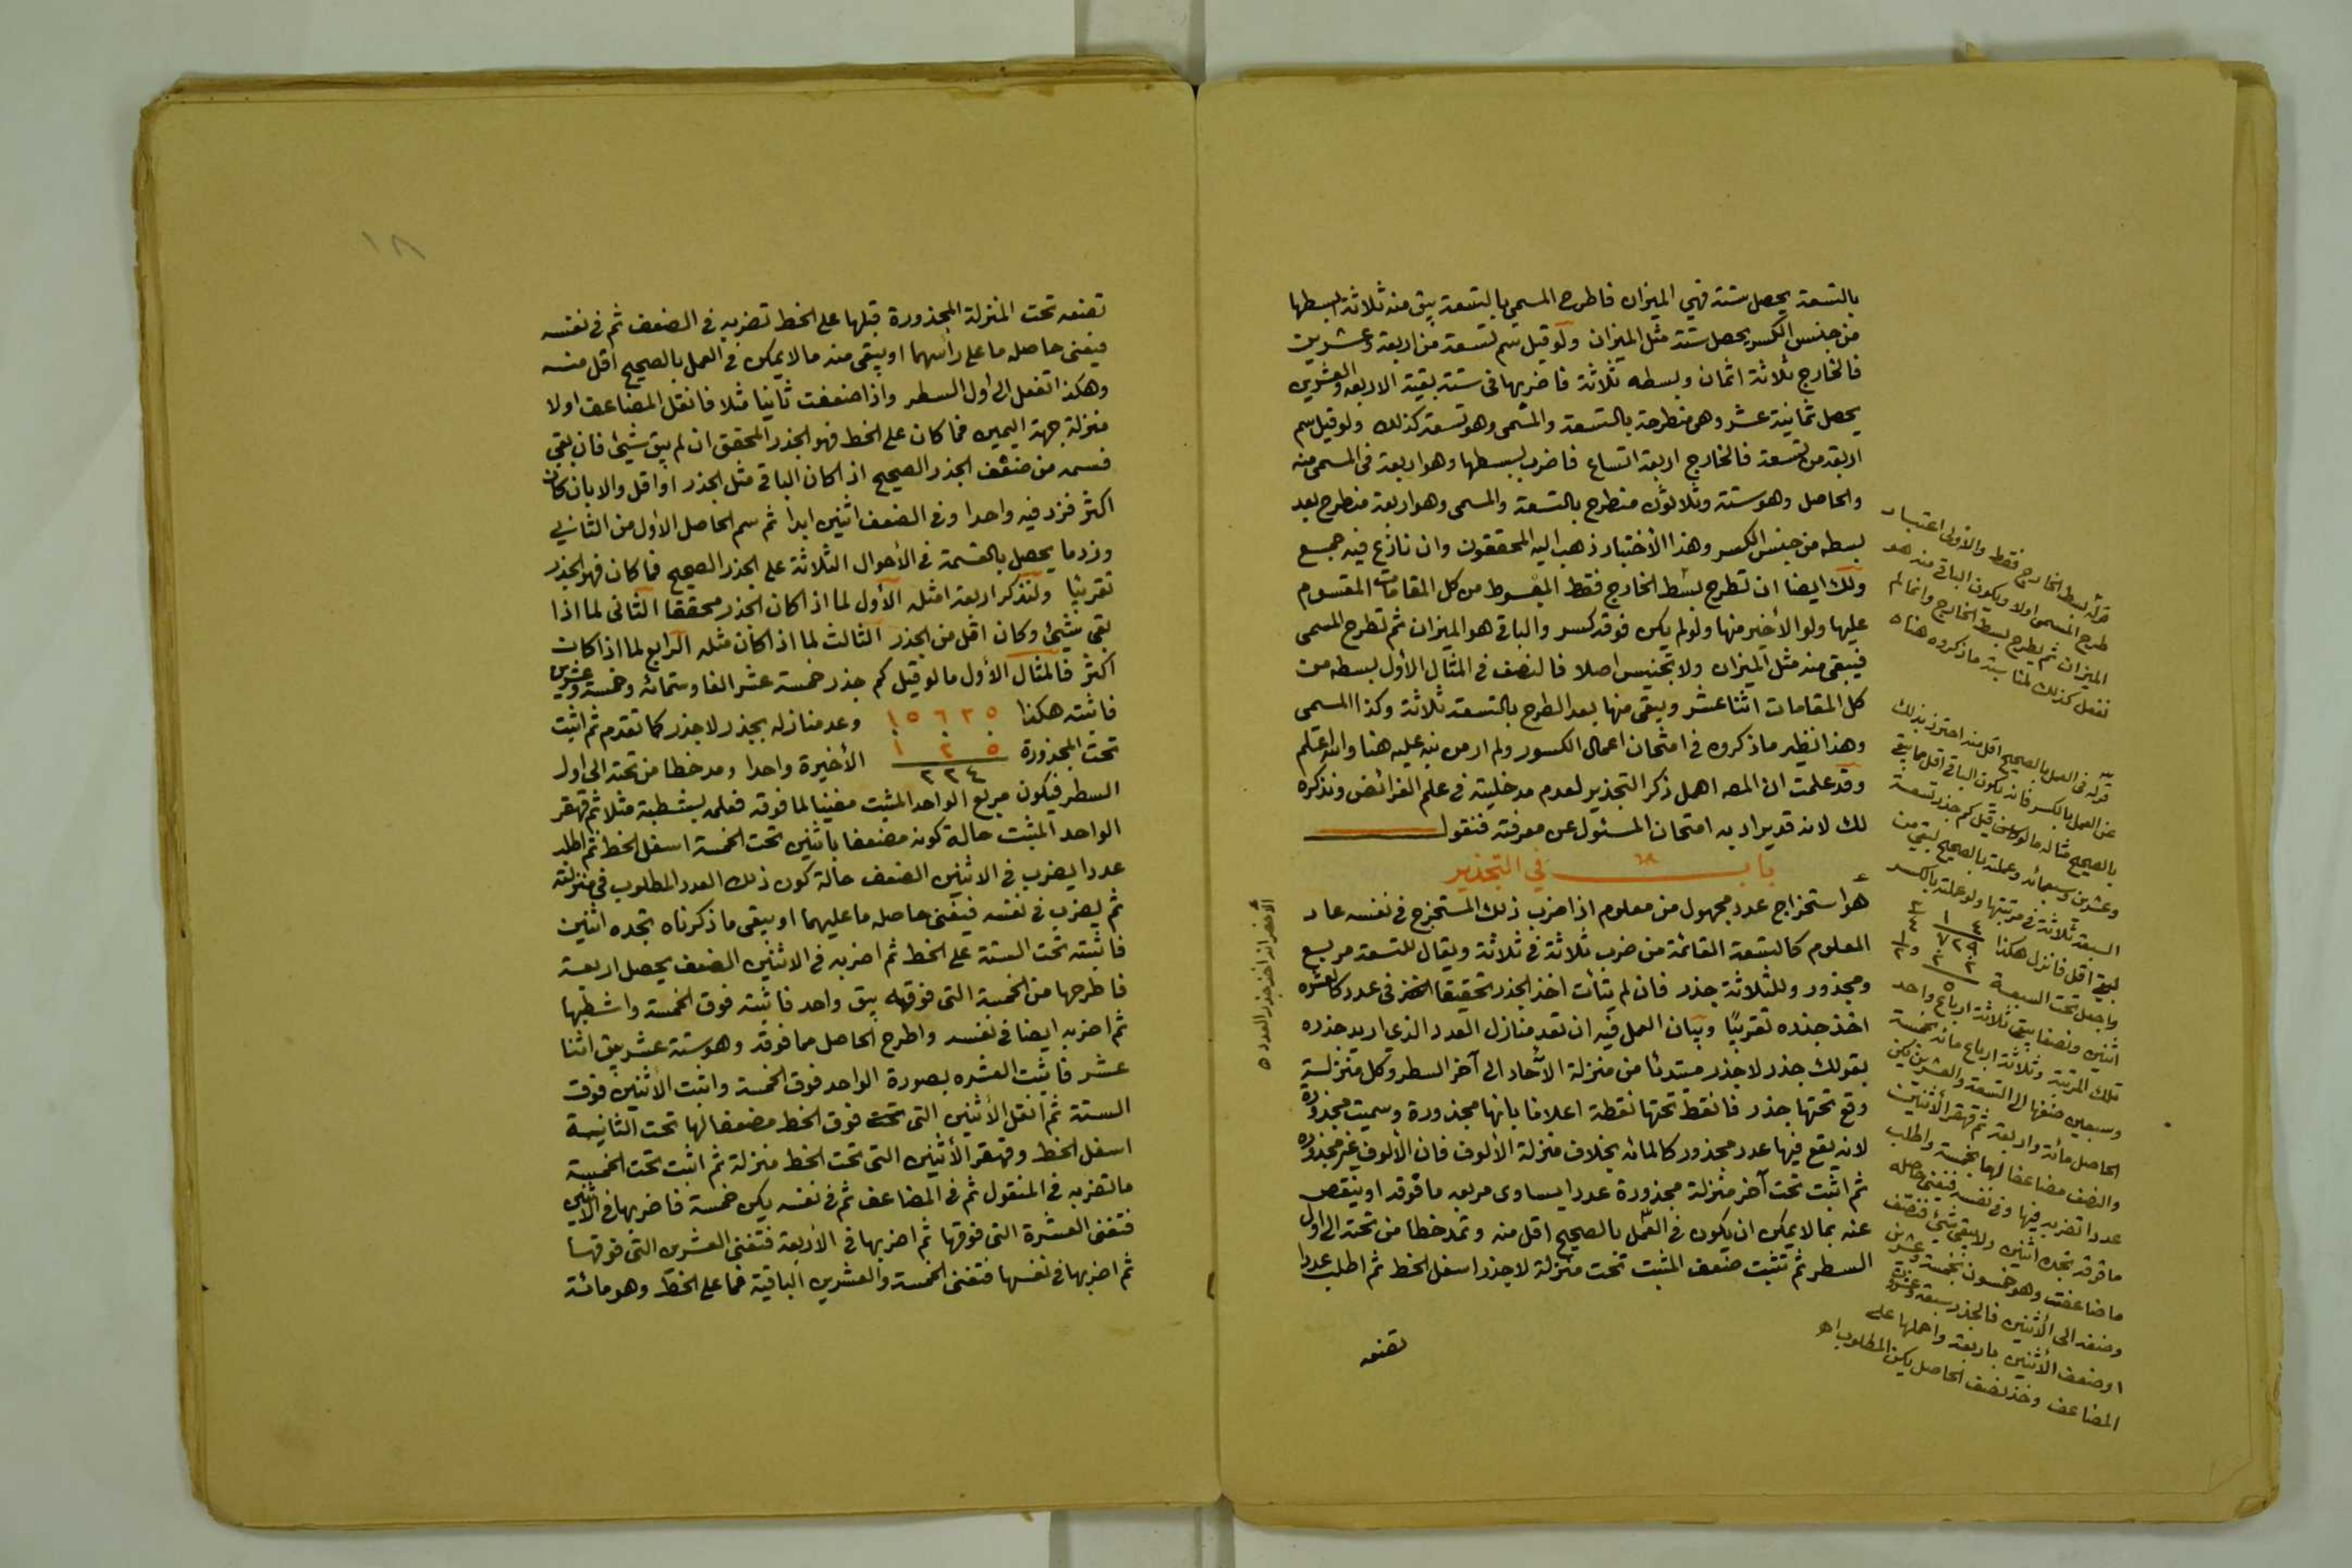 بالتسعة يحصل ستة فهي الميزان فاطرح المسمى بالتسعة يبق منه ثلاثة ابسطها
من جنس الكسر يحصل ستة مثل الميزان ولو قيل سم تسعة من اربعة وعشرين
فالخارج ثلاثة اثمان وبسطه ثلاثة فاضربها فى ستة بقية الاربعة والعشرين
يحصل ثمانية عشر وهى منطرحة بالتسعة والمسمى وهو تسعة كذلك ولو قيل سم
اربعة من تسعة فالخارج اربعة اتساع فاضرب بسطها وهو اربعة فى المسمى منه
والحاصل وهو ستة وثلاثون منطرح بالتسعة والمسمى وهو اربعة منطرح بعد
بسطه من جنس الكسر وهذا الأختبار ذهب اليه المحققون وان نازع فيه جمع
ولك ايضا ان تطرح بسط الخارج فقط المبسوط من كل المقامات المقسوم
عليها ولو الأخير منها ولو لم يكن فوقه كسر والباقى هو الميزان ثم تطرح المسمى
فيبقى منه مثل الميزان ولا تجنيس اصلا فالنصف فى المثال الأول بسطه من
كل المقامات اثنا عشر ويبقى منها بعد الطرح بالتسعة ثلاثة وكذا المسمى
وهذا نظير ما ذكروه فى امتحان اعمال الكسور ولم ار من نبه عليه هنا والله اعلم
وقد علمت ان المص اهمل ذكر التجذير لعدم مدخليته فى علم الفرائض ونذكره
لك لانه قد يراد به امتحان المسئول عن معرفته فنقول
باب فى التجذير
هو استخراج عدد مجهول من معلوم اذا ضرب ذلك المستخرج فى نفسه عاد
المعلوم كالتسعة القائمة من ضرب ثلاثة فى ثلاثة ويقال للتسعة مربع
ومجذور وللثلاثة جذر فان لم يتأت اخذ الجذر تحقيقا فى عدد كالعشره
اخذ جذره تقريبًا وبيان العمل فيه ان تعد منازل العدد الذى اريد جذره
بقولك جذر لا جذر مبتدئا من منزلة الآحاد الى آخر السطر وكل منزلة
وقع تحتها جذر فانقط تحتها نقطة اعلاما بانها مجذورة وسميت مجذورة
لانه يقع فيها عدد مجذور كالمائه بخلاف منزلة الألوف فان الألوف غير مجذوره
ثم اثبت تحت آخر منزلة مجذورة عددا يساوى مربعه ما فوقه او ينقص
عنه بما لا يمكن ان يكون فى العمل بالصحيح اقل منه وتمد خطا من تحته الى اول
السطر ثم تثبت ضعف المثبت تحت منزلة لا جذر اسفل الخط ثم اطلب عددا
تضعه
قوله بسط الخارج فقط والأولى اعتبار
طرح المسمى اولا ويكون الباقى منه هو
الميزان ثم يطرح بسط الخارج وانما لم
نفعل كذلك لمناسبة ما ذكروه هناه
قوله فى العمل بالصحيح اقل منه احترز بذلك
عن العمل بالكسر فانه يكون الباقى اقل مما يبقى
بالصحيح مثاله ما لو قيل كم جذر تسعة
وعشرين وسبعمائه وعملته بالصحيح لبقى من
السبعة ثلاثة فى مرتبتها ولو عملته بالكسر
لبقى اقل فانزل هكذا
واجعل تحت السبعة
اثنين ونصفا يبقى ثلاثة ارباع واحد
تلك المرتبة وثلاثة ارباع مائه بخمسة
وسبعين ضفها الى التسعة والعشرين يكن
الحاصل مائة واربعة ثم قهقر الأثنين
والنصف مضاعفا لهما بخمسة واطلب
عددا تضربه فيها وفى نفسه فيفنى حاصله
ما فوقه تجده اثنين ولا يبقى شئ فنصف
ما ضاعفت وهو خمسون بخمسة وعشرين
وضفه الى الأثنين فالجذر سبعة وعشرون
او ضعف الأثنين باربعة واحملها على
المضاعف وخذ نصف الحاصل يكن المطلوب اهـ
١٨
تضعه تحت المنزلة المجذورة قبلها على الخط تضربه فى الضعف ثم فى نفسه
فيفنى حاصله ما على رأسهما او يبقى منه ما لا يمكن فى العمل بالصحيح اقل منه
وهكذا تفعل الى اول السطر واذا ضعفت ثانيا مثلا فانقل المضاعف اولا
منزلة جهة اليمين فما كان على الخط فهو الجذر المحقق ان لم يبق شيئ فان بقى
فسمه من ضعف الجذر الصحيح اذا كان الباقى مثل الجذر او اقل والا بان كان
اكثر فزد فيه واحدا وفى الضعف اثنين ابدا ثم سم الحاصل الاول من الثانى
وزد ما يحصل بالقسمة فى الأحوال الثلاثة على الجذر الصحيح فما كان فهو الجذر
تقريبًا ولنذكر اربعة امثلة الأول لما اذا كان الجذر محققا الثانى لما اذا
بقى شيئ وكان اقل من الجذر الثالث لما اذا كان مثله الرابع لما اذا كان
اكثر فالمثال الأول ما لو قيل كم جذر خمسة عشر الفا وستمائه وخمسة وعشرين
فاثبته هكذا ١٥٦٢٥ وعد منازله بجذر لا جذر كما تقدم ثم اثبت
تحت المجذورة ١ ٢ ٥ الأخيرة واحدا ومد خطا من تحته الى اول
٢٢٤
السطر فيكون مربع الواحد المثبت مفنيا لما فوقه فعلمه بشطبة مثلا ثم قهقر
الواحد المثبت حالة كونه مضعفا باثنين تحت الخمسة اسفل الخط ثم اطلب
عددا يضرب فى الاثنين الضعف حالة كون ذلك العدد المطلوب فى منزلته
ثم يضرب فى نفسه فيفنى حاصله ما عليهما او يبقى ما ذكرناه تجده اثنين
فاثبته تحت الستة على الخط ثم اضربه فى الاثنين الضعف يحصل اربعة
فاطرحها من الخمسة التى فوقها يبق واحد فاثبته فوق الخمسة واشطبها
ثم اضربه ايضا فى نفسه واطرح الحاصل مما فوقه وهو ستة عشر يبق اثنا
عشر فاثبت العشره بصورة الواحد فوق الخمسة واثبت الأثنين فوق
الستة ثم انقل الأثنين التى فوق الخط مضعفا لها تحت الثانية
اسفل الخط وقهقر الأثنين التى تحت الخط منزلة ثم اثبت تحت الخمسة
ما تضربه فى المنقول ثم فى المضاعف ثم فى نفسه يكن خمسة فاضربها فى الأثنين
فتفنى العشرة التى فوقها ثم اضربها فى الأربعة فتفنى العشرين التى فوقها
ثم اضربها فى نفسها فتفنى الخمسة والعشرين الباقية فما على الخط وهو مائة